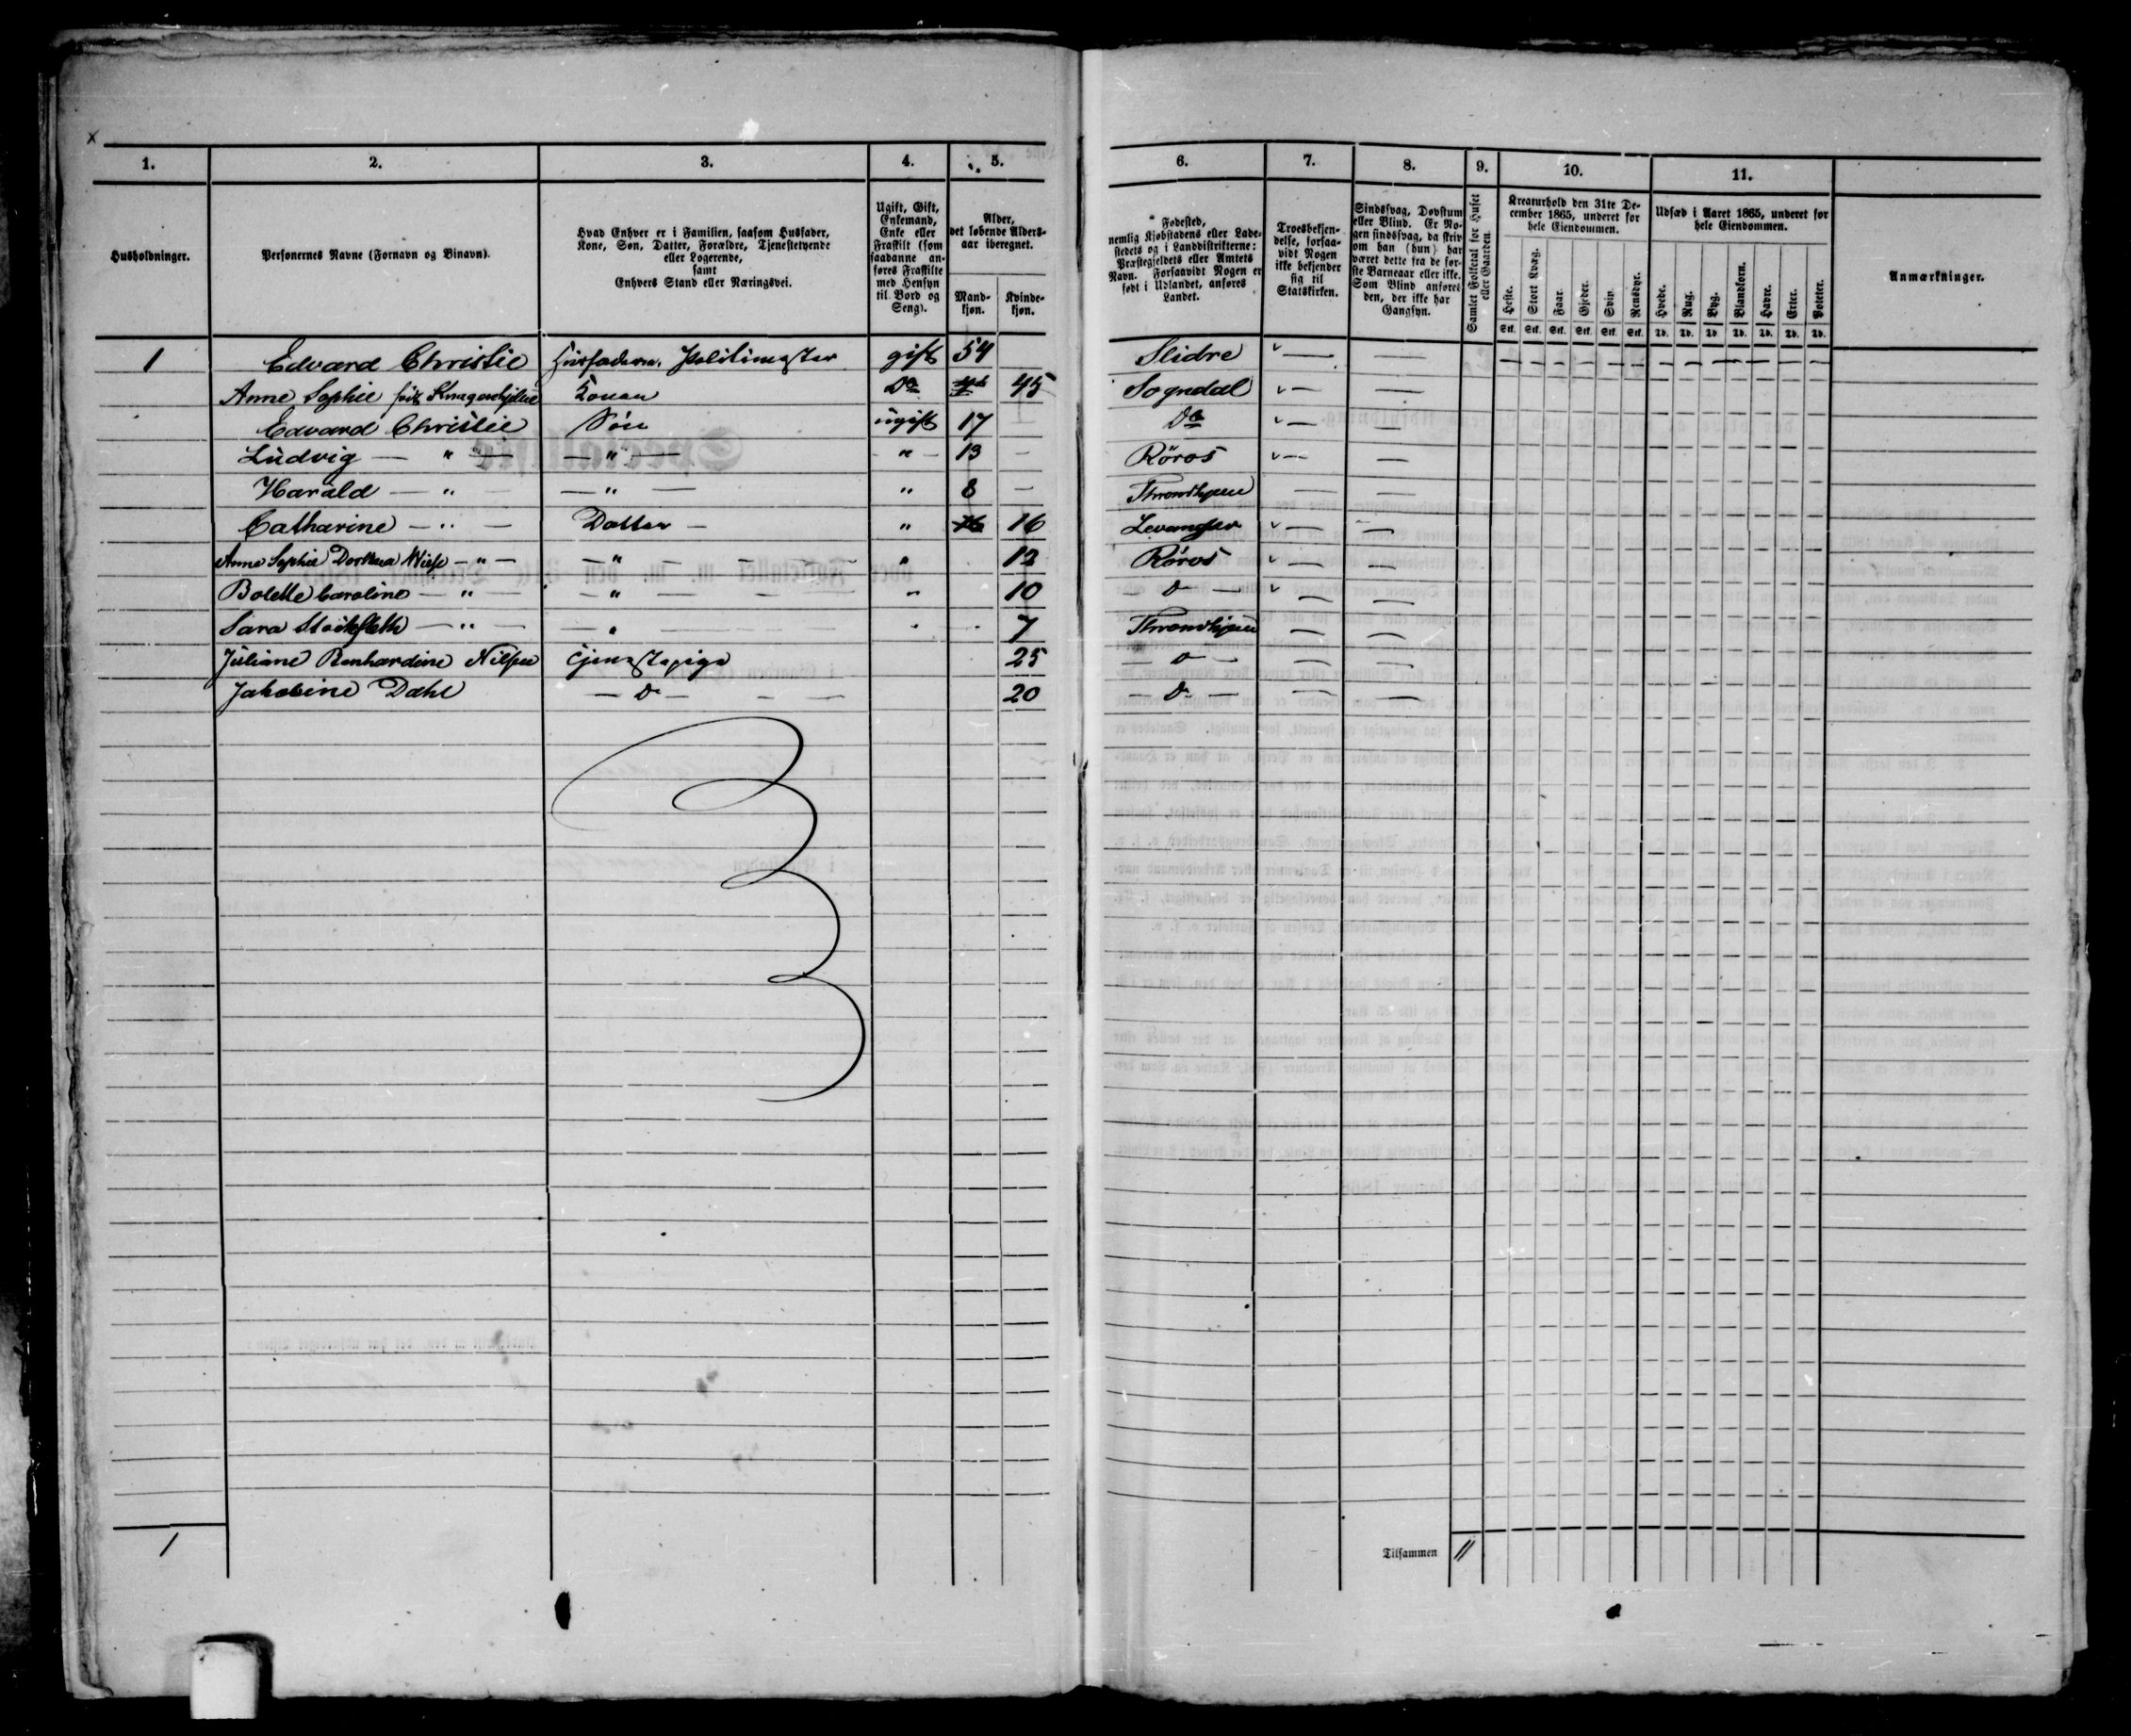 x
1. 2. 3. 4. 5. 6. 7. 8. 9. 10. 11.
Husholdninger.
Personernes Navne (Fornavn og Binavn).
Hvad Enhver er i Familien, saasom Husfader,
Kone, Søn, Datter, Forældre, Tjenestetyende
eller Logerende,
samt
Enhvers Stand eller Næringsvei.
Ugift, Gift,
Enkemand,
Enke eller
Fraskilt (som
saadanne an-
føres Fraskilte
med Hensyn
til Bord og
Seng).
Alder,
det løbende Alders-
aar iberegnet.
Mand-
kjøn.
Kvinde-
kjøn.
Fødested,
nemlig Kjøbstadens eller Lade-
stedets og i Landdistrikterne:
Præstegjeldets eller Amtets
Navn. Forsaavidt Nogen er
født i Udlandet, anføres
Landet.
Troesbekjen-
delse, forsaa-
vidt Nogen
ikke bekjender
sig til
Statskirken.
Sindssvag, Døvstum
eller Blind. Er No-
gen sindssvag, da skriv
om han (hun) har
været dette fra de før-
ste Barneaar eller ikke.
Som Blind anføres
den, der ikke har
Gangsyn.
Samlet Folketal for Huset
eller Gaarden.
Kreaturhold den 31te De-
cember 1865, underet for
hele Eiendommen.
Heste. Stort Kvæg. Faar. Gjeder. Svin. Rensdyr.
Stk. Stk. Stk. Stk. Stk. Stk.
Udsæd i Aaret 1865, underet for
hele Eiendommen.
Hvede. Rug. Byg. Blandkorn. Havre. Erter. Poteter.
Td. Td. Td. Td. Td. Td. Td.
Anmærkninger.
1 Edvard Christie Husfader, Politimester gift 54 Slidre
Anne Sophie født Do 45 Sogndal
Edvard Christie Søn ugift 17 Do
Ludvig — " — — " — " 13 Røros
Harald — " — — " — " 8 Throndhjem
Catharine — " — Datter — " 16 Levanger
Anne Sophie Dorthea — " — — " — " 12 Røros
Bolette Caroline — " — — " — " 10 D —
Sara Stockfleth — " — — " — " 7 Throndhjem
Juliane Bernhardine Nilsen Tjenestepige 25 — D —
Jakobine Dahl — D — 20 — D —
1
Tilsammen 11